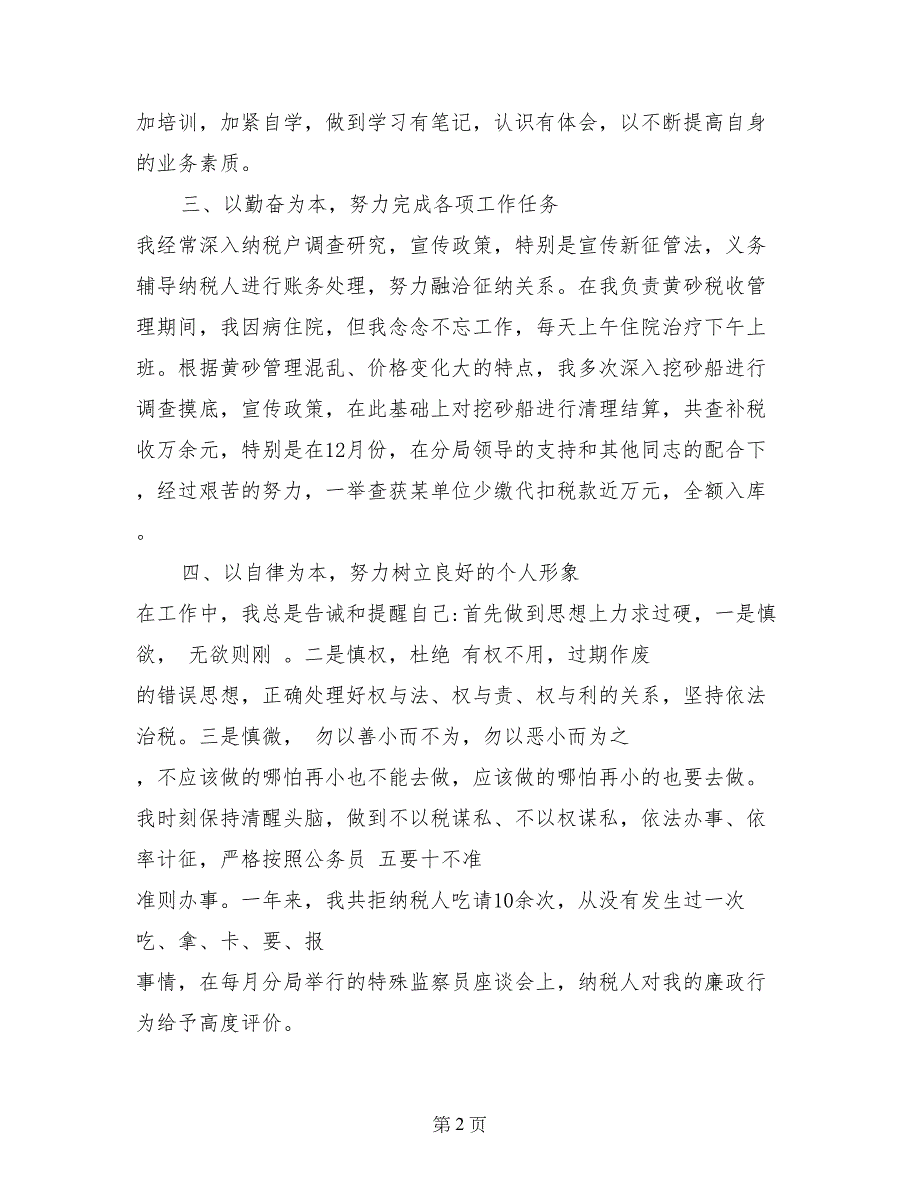 加培训，加紧自学，做到学习有笔记，认识有体会，以不断提高自身
的业务素质。
三、以勤奋为本，努力完成各项工作任务
我经常深入纳税户调查研究，宣传政策，特别是宣传新征管法，义务
辅导纳税人进行账务处理，努力融洽征纳关系。在我负责黄砂税收管
理期间，我因病住院，但我念念不忘工作，每天上午住院治疗下午上
班。根据黄砂管理混乱、价格变化大的特点，我多次深入挖砂船进行
调查摸底，宣传政策，在此基础上对挖砂船进行清理结算，共查补税
收万余元，特别是在12月份，在分局领导的支持和其他同志的配合下
，经过艰苦的努力，一举查获某单位少缴代扣税款近万元，全额入库
。
四、以自律为本，努力树立良好的个人形象
在工作中，我总是告诫和提醒自己:首先做到思想上力求过硬，一是慎
欲， 无欲则刚 。二是慎权，杜绝 有权不用，过期作废
的错误思想，正确处理好权与法、权与责、权与利的关系，坚持依法
治税。三是慎微， 勿以善小而不为，勿以恶小而为之
，不应该做的哪怕再小也不能去做，应该做的哪怕再小的也要去做。
我时刻保持清醒头脑，做到不以税谋私、不以权谋私，依法办事、依
率计征，严格按照公务员 五要十不准
准则办事。一年来，我共拒纳税人吃请10余次，从没有发生过一次
吃、拿、卡、要、报
事情，在每月分局举行的特殊监察员座谈会上，纳税人对我的廉政行
为给予高度评价。
第 2 页